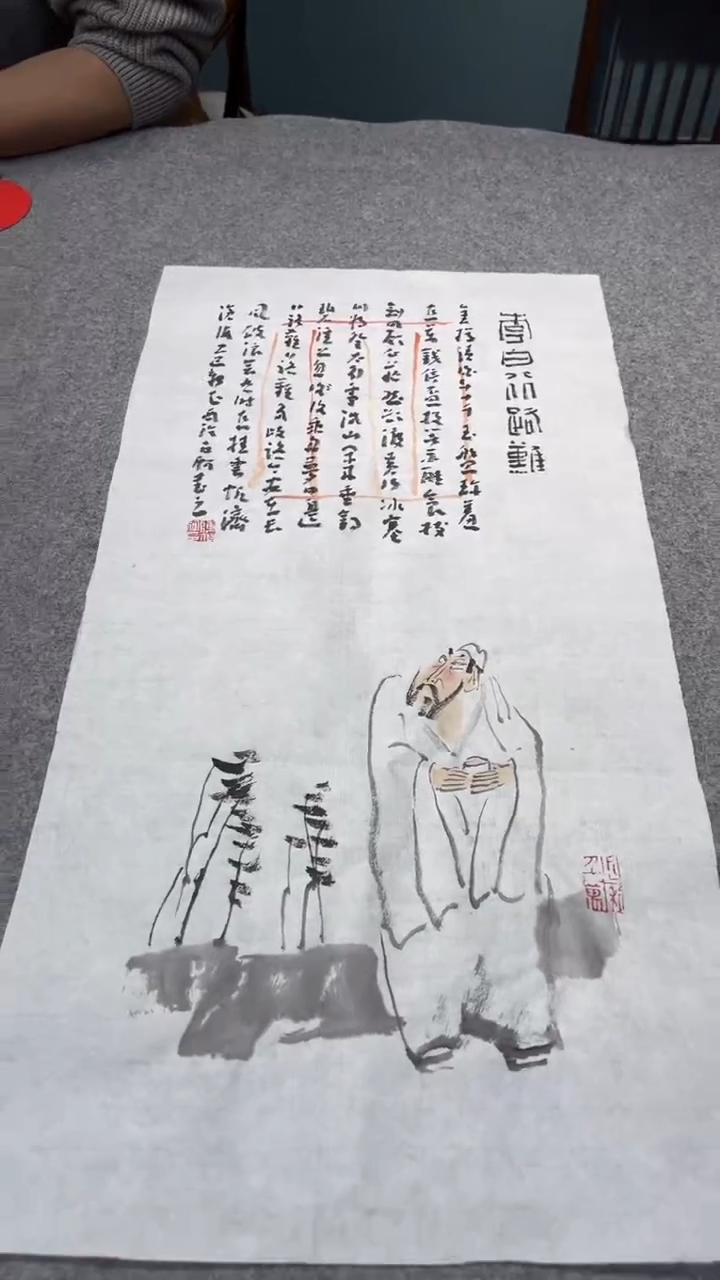 李白行路難
金樽清酒斗十千玉盤珍羞
直萬錢停盃投箸不能食拔
劍四顧心茫然欲渡黃河冰塞
川將登太行雪滿山閒來垂釣
碧溪上忽復乘舟夢日邊
行路難行路難多歧路今安在長
風破浪會有時直挂雲帆濟
滄海乙巳